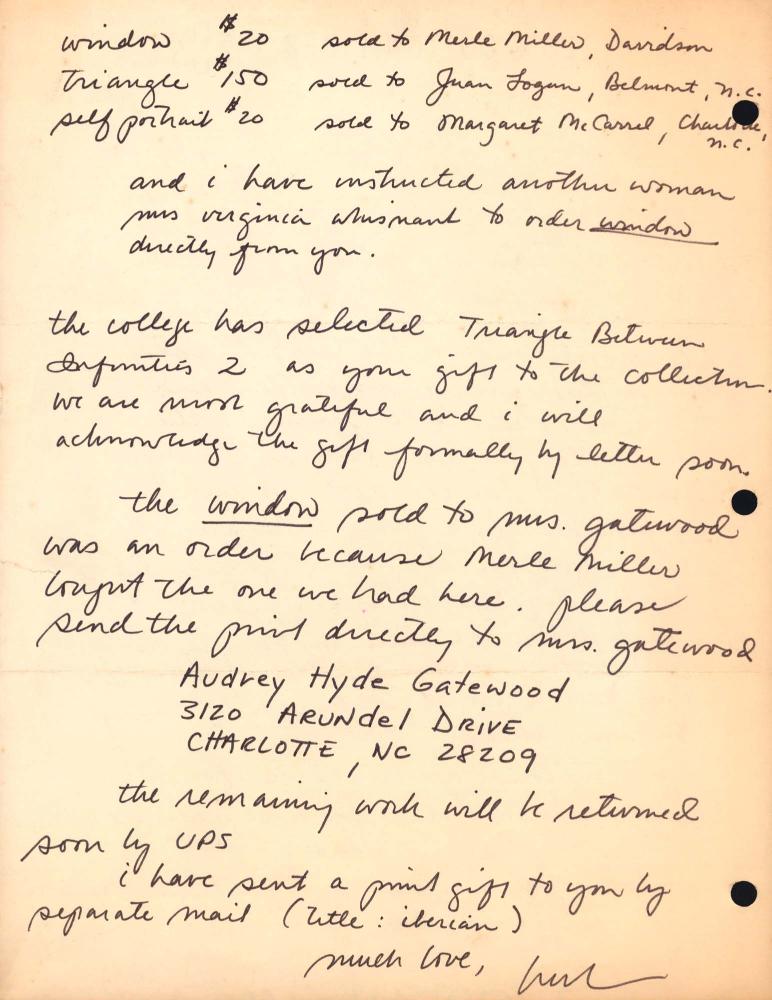 window $20 sold to Merle Miller, Davidson
Triangle $150 sold to Juan Logan, Belmont, n.c.
self portrait $20 sold to Margaret McCarrel, Charlotte,
n.c.
and i have instructed another woman
mrs virginia whisnant to order window
directly from you.
the college has selected Triangle Between
Infinities 2 as your gift to the collection.
we are most grateful and i will
acknowledge the gift formally by letter soon.
the window sold to mrs. gatewood
was an order because Merle Miller
bought the one we had here. please
send the print directly to mrs. gatewood
Audrey Hyde Gatewood
3120 ARUNdel DRIVE
CHARLOTTE, NC 28209
the remaining work will be returned
soon by UPS
i have sent a print gift to you by
separate mail (title: iberian)
much love,